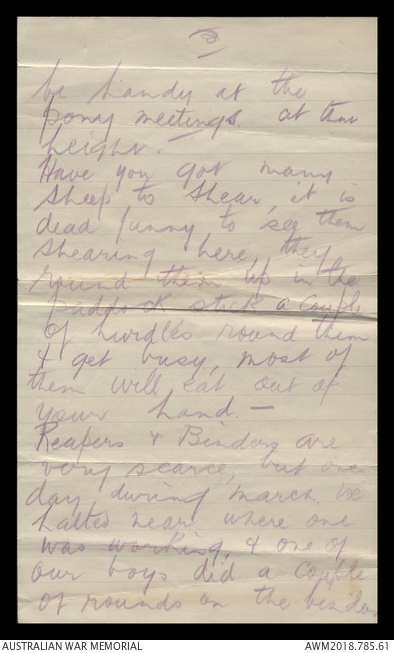 3
be handy at the
pony meetings. at that
height.
Have you got many
sheep to shear, it is
dead funny to see them
shearing here, they
round them up in the
paddock stick a couple
of hurdles round them
& get busy, most of
them will eat out of
your hand. —
Reapers & Binders are
very scarce, but one
day, during march, we
halted near where one
was working, & one of
our boys did a couple
of rounds on the binder
AUSTRALIAN WAR MEMORIAL
AWM2018.785.61